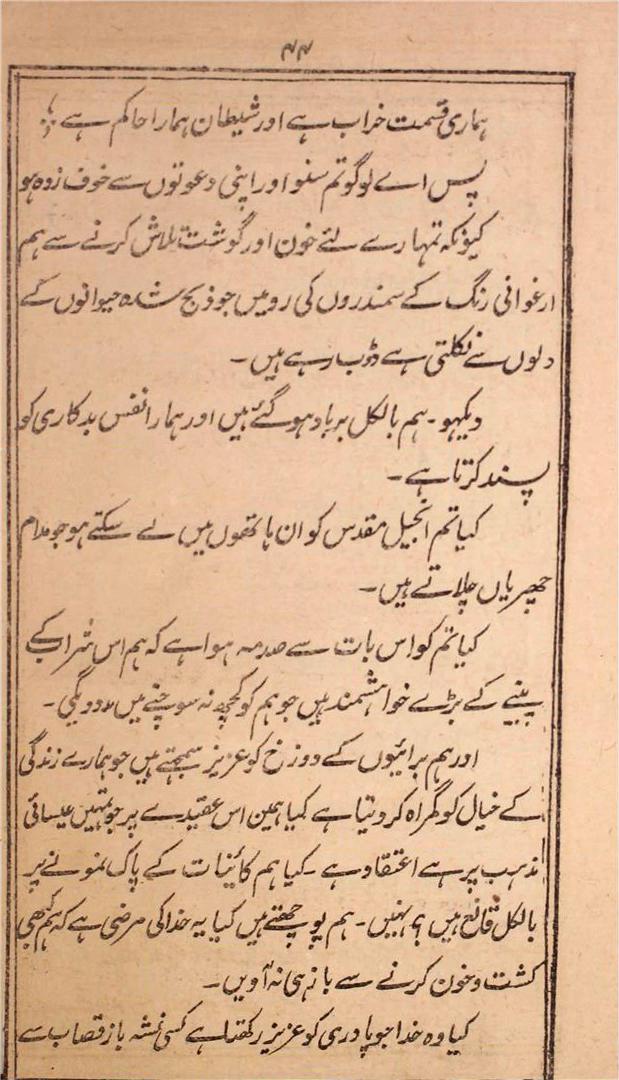 ۴۴
ہماری قسمت خراب ہے اور شیطان ہمارا حاکم ہے
پس اے لوگو تم سنو اور اپنی دعوتوں سے خوف زدہ ہو
کیونکہ تمہارے لئے خون اور گوشت تلاش کرنے سے ہم
ارغوانی رنگ کے سمندروں کی رو میں جو ذبح شدہ حیوانوں کے
دلوں سے نکلتی ہے ڈوب رہے ہیں ۔
دیکہو ۔ ہم بالکل برباد ہو گئے ہیں اور ہمارا نفس بدکاری کو
پسند کرتا ہے ۔
کیا تم انجیل مقدس کو ان ہاتھوں میں لے سکتے ہو جو مدام
چھریاں چلاتے ہیں ۔
کیا تم کو اس بات سے صدمہ ہوا ہے کہ ہم اس شراب کے
پینے کے بڑے خواہشمند ہیں جو ہم کو کچھ نہ سوچنے میں مدد دیگی ۔
اور ہم برائیوں کے دوزخ کو عزیز سمجہتے ہیں جو ہمارے زندگی
کے خیال کو گمراہ کر دیتا ہے کیا ہمین اس عقیدے پر جو تمہیں عیسائی
مذہب پر ہے اعتقاد ہے ۔ کیا ہم کائینات کے پاک نمونے پر
بالکل قانع ہیں ؟ نہیں ۔ ہم پوچھتے ہیں کیا یہ خدا کی مرضی ہے کہ ہم کبھی
کشت و خون کرنے سے باز ہی نہ آویں ۔
کیا وہ خدا جو پادری کو عزیز رکھتا ہے کسی نشہ باز قصاب سے